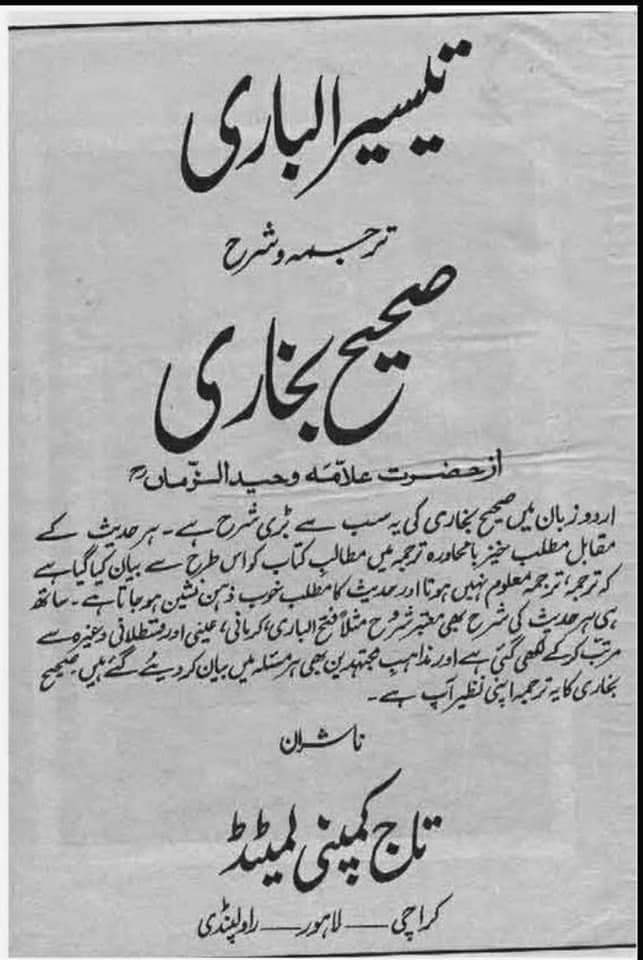 تیسیر الباری
ترجمہ و شرح
صحیح بخاری
از حضرت علامہ وحید الزماںؒ
اردو زبان میں صحیح بخاری کی یہ سب سے بڑی شرح ہے۔ ہر حدیث کے
مقابل مطلب خیز بامحاورہ ترجمہ میں مطالبِ کتاب کو اس طرح سے بیان کیا گیا ہے
کہ ترجمہ، ترجمہ معلوم نہیں ہوتا اور حدیث کا مطلب خوب ذہن نشین ہو جاتا ہے۔ ساتھ
ہی ہر حدیث کی شرح بھی معتبر شروح مثلاً فتح الباری، کرمانی، عینی اور قسطلانی وغیرہ سے
مرتب کرکے لکھی گئی ہے اور مذاہب مجتہدین بھی ہر مسئلہ میں بیان کر دیئے گئے ہیں۔ صحیح
بخاری کا یہ ترجمہ اپنی نظیر آپ ہے۔
ناشران
تاج کمپنی لمیٹڈ
کراچی — لاہور — راولپنڈی